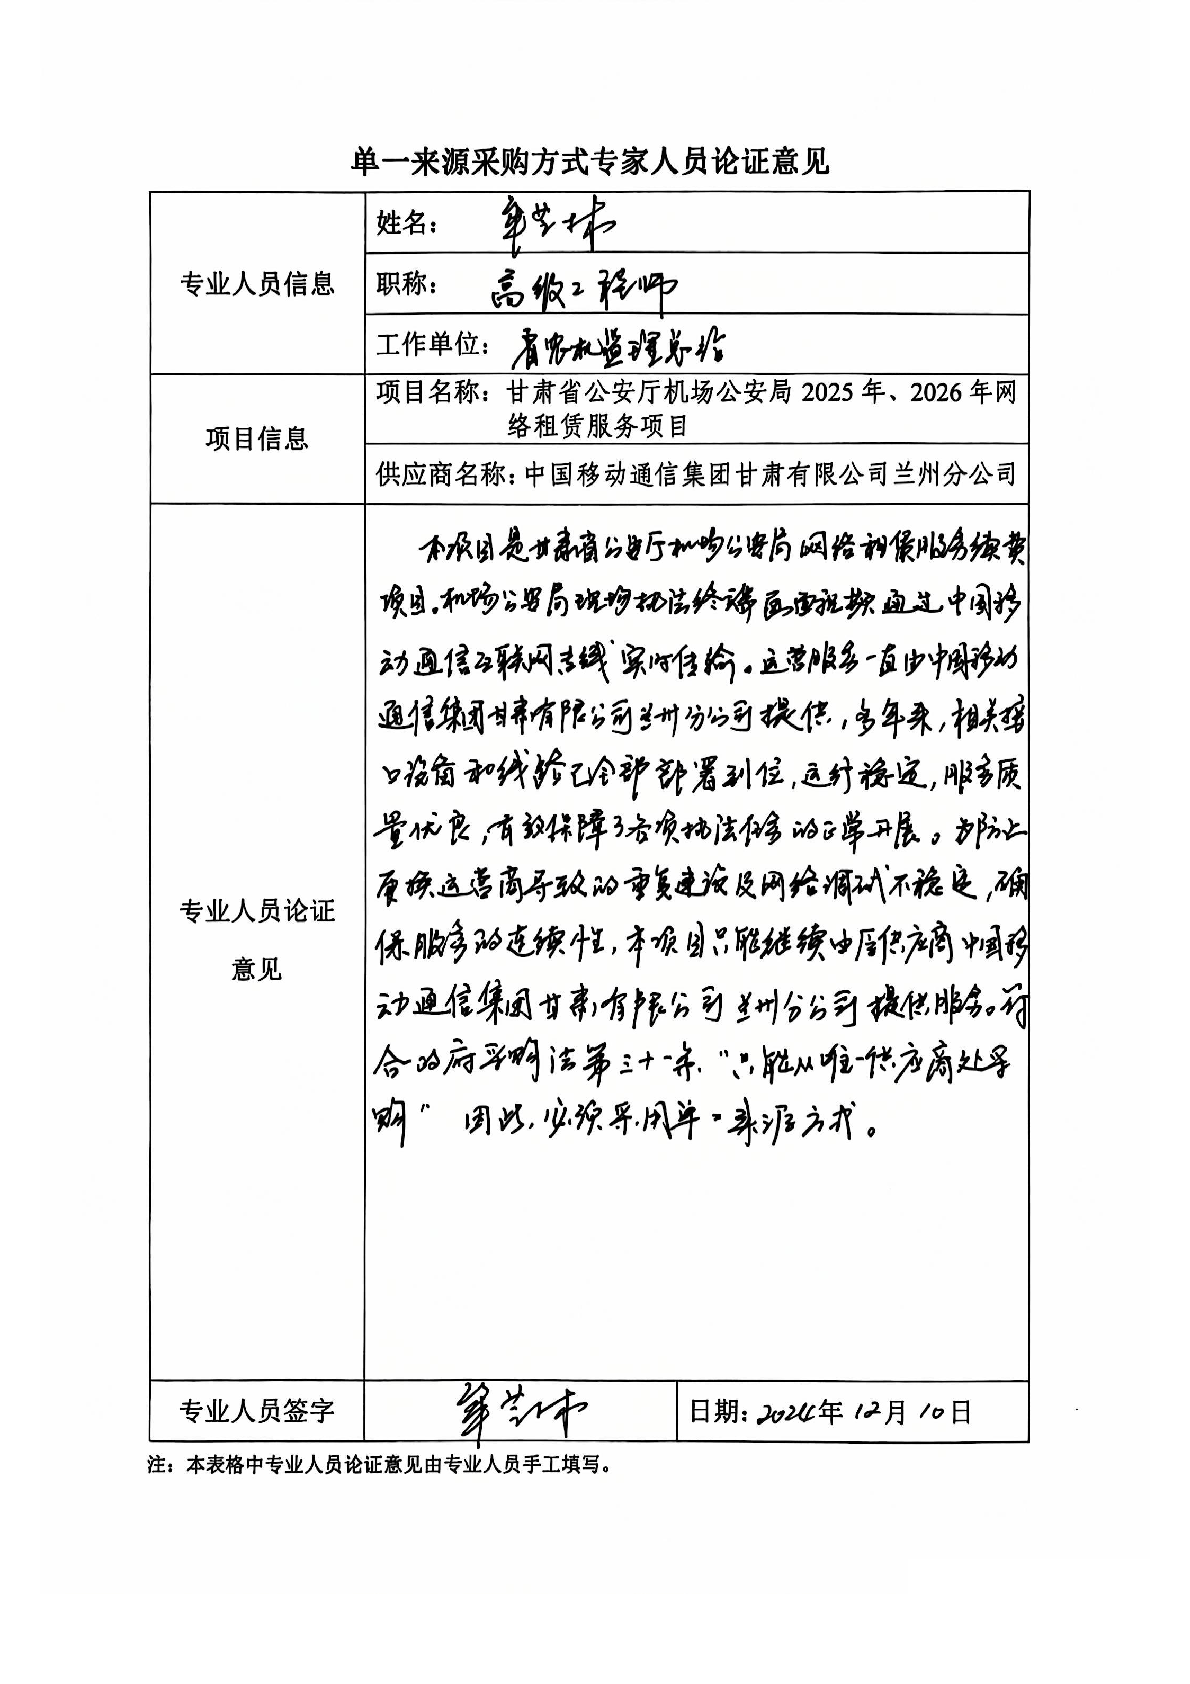 单一来源采购方式专家人员论证意见
专业人员信息
姓名：
职称：高级工程师
工作单位：省农机监理总站
项目信息
项目名称：甘肃省公安厅机场公安局 2025 年、2026 年网
络租赁服务项目
供应商名称：中国移动通信集团甘肃有限公司兰州分公司
专业人员论证
意见
本项目是甘肃省公安厅机场公安局网络租赁服务续费
项目。机场公安局现场执法终端画面视频通过中国移
动通信互联网专线实时传输。运营服务一直由中国移动
通信集团甘肃有限公司兰州分公司提供，多年来，相关接
口设备和线路已全部部署到位，运行稳定，服务质
量优良，有效保障了各项执法任务的正常开展。为防止
更换运营商导致的重复建设及网络调试不稳定，确
保服务的连续性，本项目只能继续由原供应商中国移
动通信集团甘肃有限公司兰州分公司提供服务。符
合政府采购法第三十一条"只能从唯一供应商处采
购" 因此，必须采用单一来源方式。
专业人员签字
日期：2024年 12月 10日
注：本表格中专业人员论证意见由专业人员手工填写。